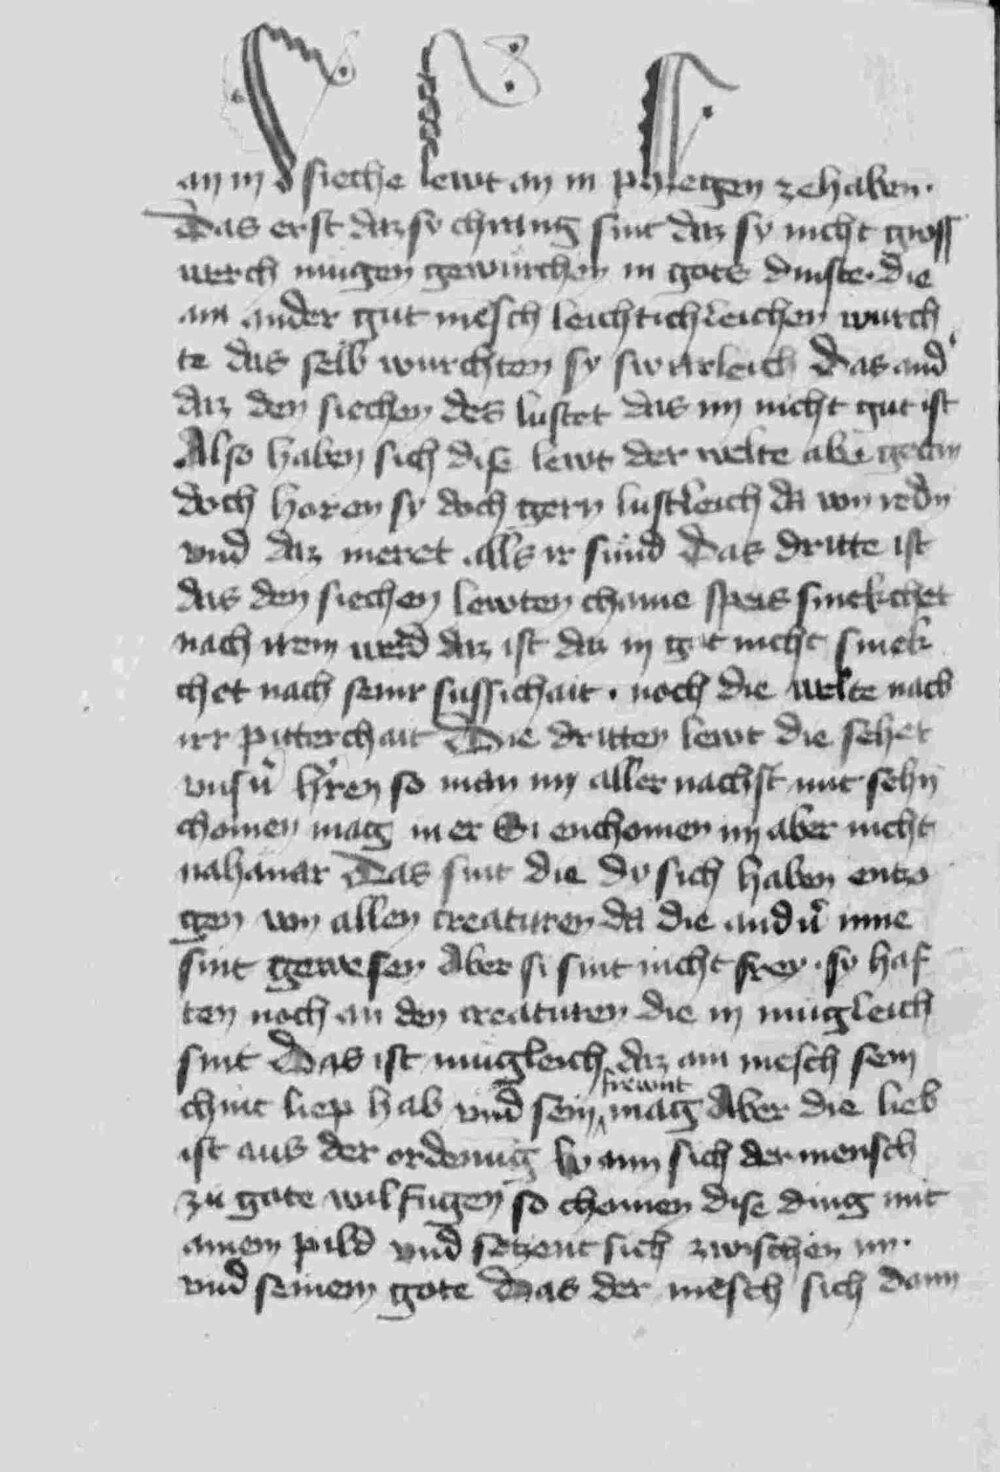 an in d sieche lewt an in pflegen ze haben.
Das erst daz sy chrang sint daz sy nicht gross
werch mugen gewurchen in gots dinste. die
ain ander gut mēsch leichtichleichen wurch
te das selb wurchten sy swerleich Das and
daz den siechen des lustet das im nicht gut ist
Also haben sich dise lewt der welte abgetan
doch horen sy doch gern lustleich da von redn
vnd daz meret alls ir sünd Das dritte ist
das den siechen lewten chaine speis smekchet
nach irem werd daz ist daz in got nicht smek
chet nach seinr sussichait. noch die welte nach
irr pitterchait Die dritten lewt die sehet
hren so man im aller nachst mit sehn
chomen mag in er Si enchomen im aber nicht
nahanar Das sint die do sich haben entzo
gen von allen creaturen da die and inne
sint gewesen Aber si sint nicht frey. sy haf
ten noch an den creaturen die in mugleich
sint Das ist mugleich daz ain mēsch sein
chint liep hab vnd sein frewnt mag Aber die lieb
ist aus der ordenūg wann sich der mensch
zu gote wil fugen so chomen dise ding mit
ainem pild vnd setzent sich zwischen im.
vnd seinem gote Das der mēsch sich dann